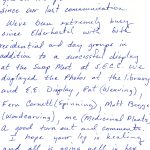 since our last communication
We've been extremely busy
since Elderhostel with both
residential and day groups in
addition to a successful display
at the Swap Meet at S.E.C.C. we
displayed the Photos at the library
and E.E. Display, Pat (Weaving),
Fern Carnell (Spinning), Matt
(Woodweaving), me (Medicinal Plants)
A good turn out and comments.
I hope your leg is healing
and all is going well in her